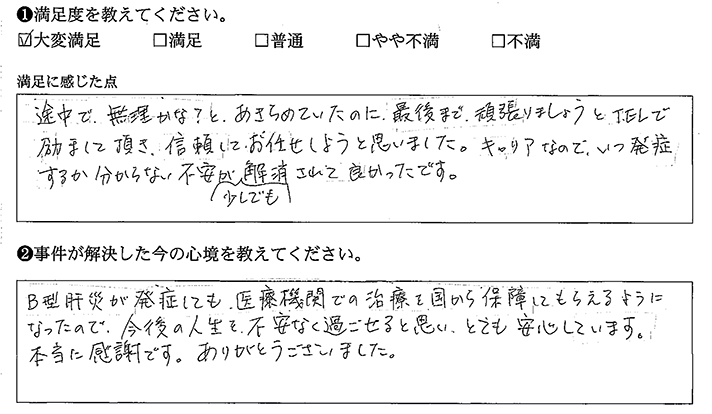 ❶満足度を教えてください。
☑大変満足 □満足 □普通 □やや不満 □不満
満足に感じた点
途中で、無理かな？と、あきらめていたのに、最後まで、頑張りましょうとTELで
励まして頂き、信頼してお任せしようと思いました。キャリアなので、いつ発症
するか分からない不安が解消されて良かったです。
少しでも
❷事件が解決した今の心境を教えてください。
B型肝災が発症しても、医療機関での治療を国から保障してもらえるように
なったので、今後の人生を、不安なく過ごせると思い、とても安心しています。
本当に感謝です。ありがとうございました。